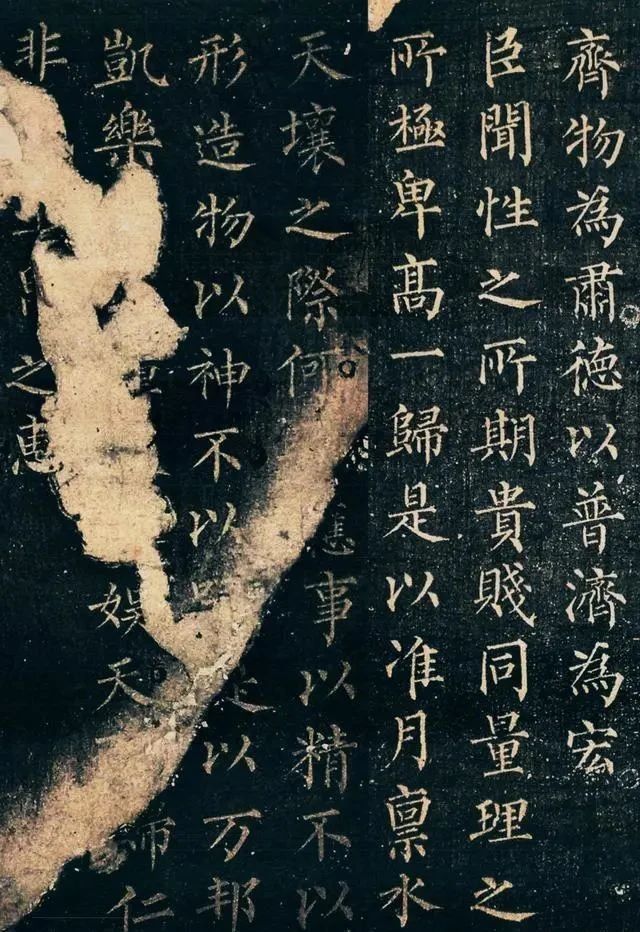 齊物為肅德以普濟為宏
臣聞性之所期貴賤同量理之
所極卑髙一歸是以准月禀水
天壤之際何事以精不以
形造物以神不以是以万邦
凱樂娛天仁
非之惠